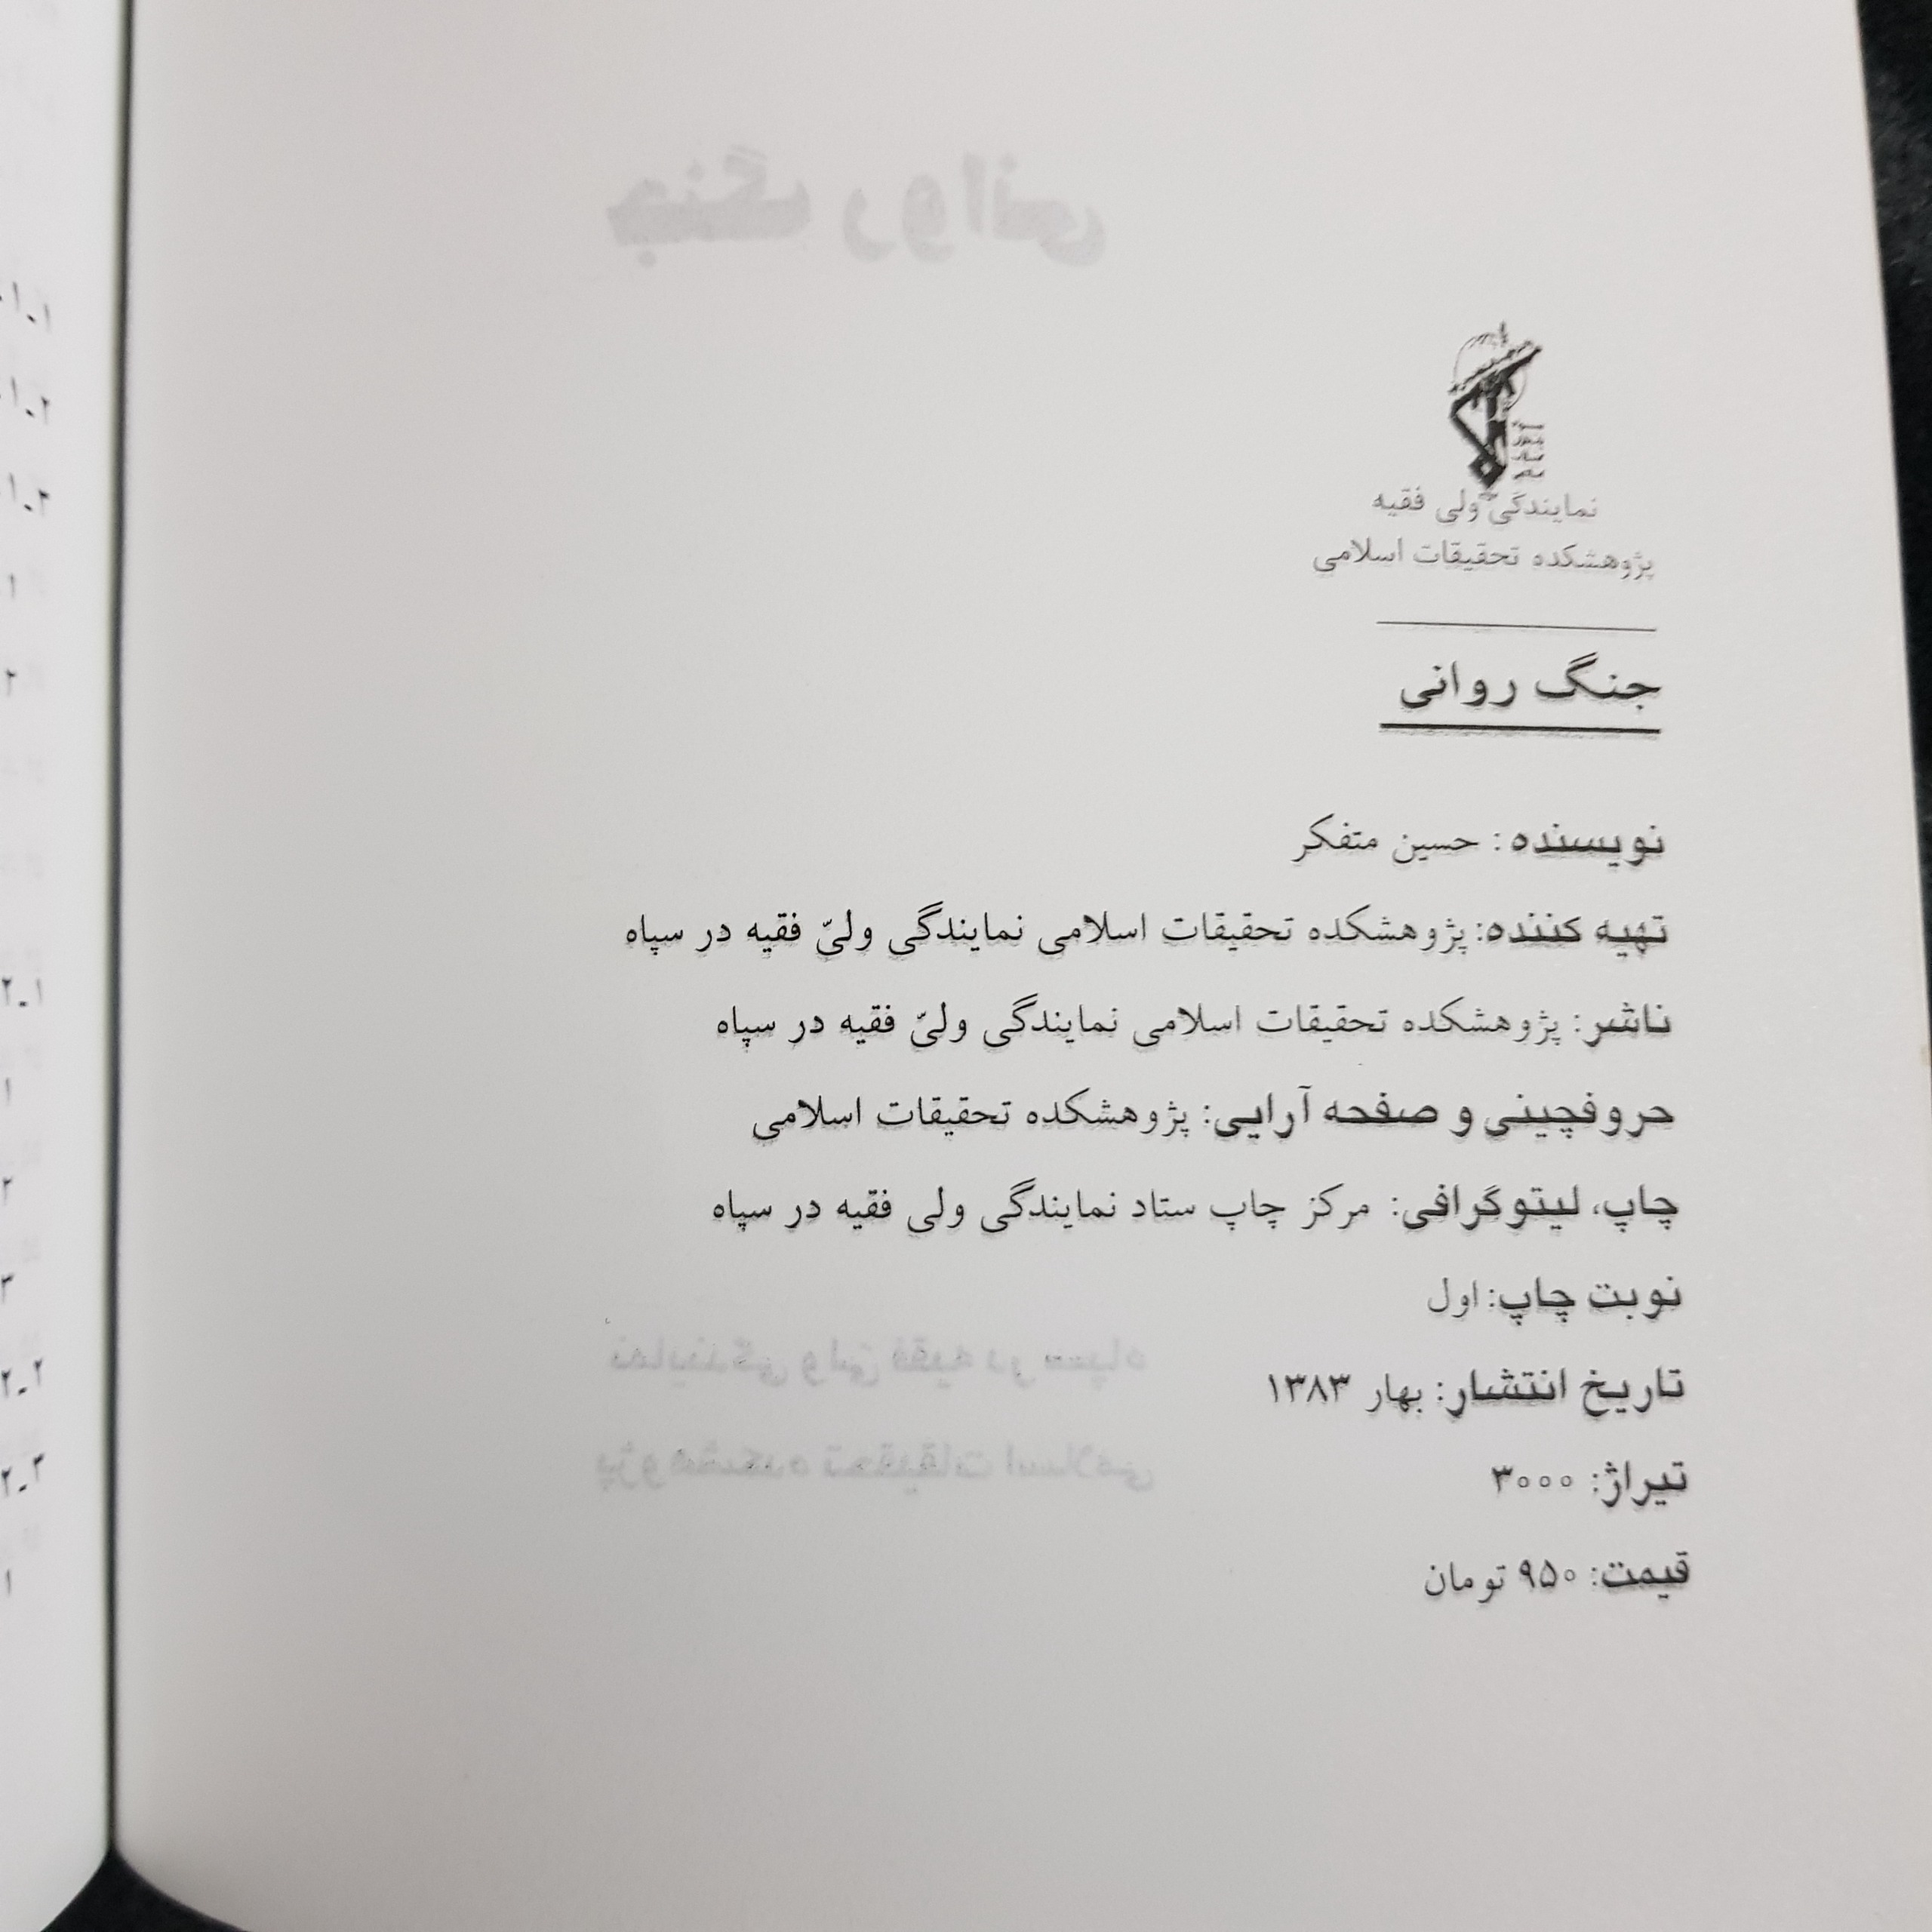 نمایندگی ولی فقیه
پژوهشکده تحقیقات اسلامی
جنگ روانی
نویسنده: حسین متفکر
تهیه کننده: پژوهشکده تحقیقات اسلامی نمایندگی ولیّ فقیه در سپاه
ناشر: پژوهشکده تحقیقات اسلامی نمایندگی ولیّ فقیه در سپاه
حروفچینی و صفحه آرایی: پژوهشکده تحقیقات اسلامی
چاپ، لیتوگرافی: مرکز چاپ ستاد نمایندگی ولی فقیه در سپاه
نوبت چاپ: اول
تاریخ انتشار: بهار ۱۳۸۳
تیراژ: ۳۰۰۰
قیمت: ۹۵۰ تومان